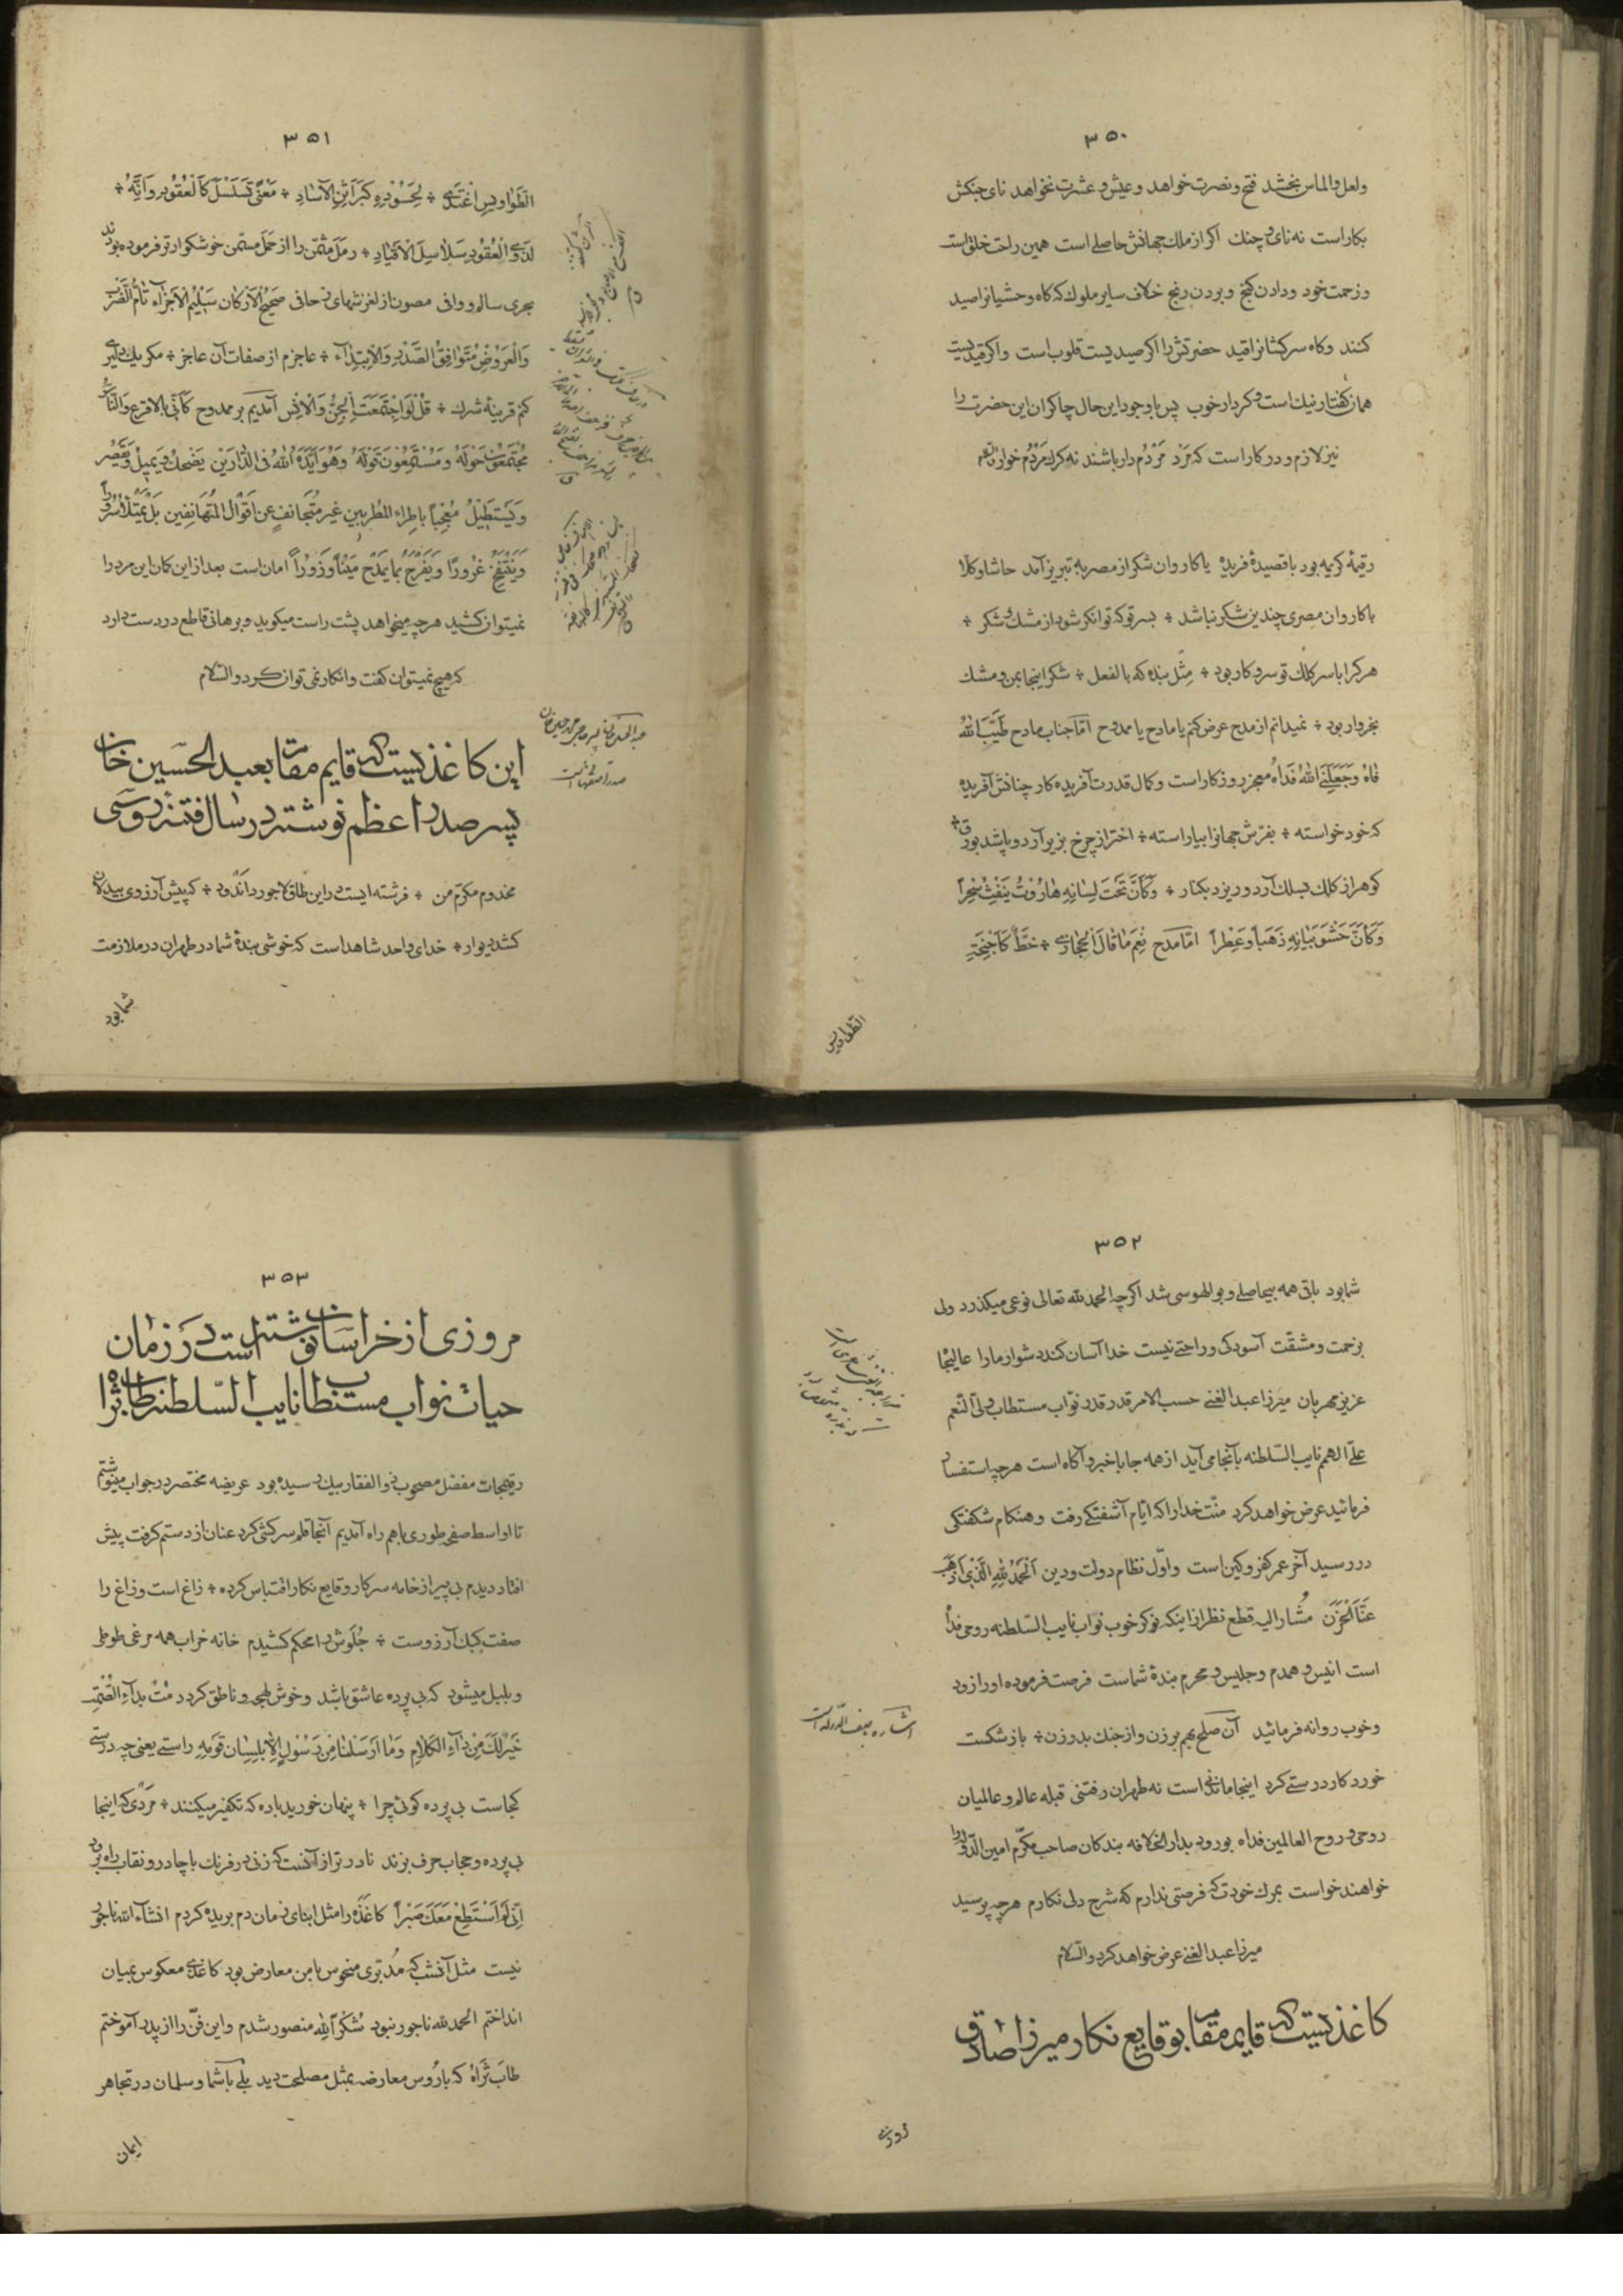 ۳۵۰
ولعل والماس بخشد فتح ونصرت خواهد وعیش وعشرت نخواهد نای جنکش
بکار است نه نای وچنك اکر از ملك جهانش حاصلے است همین راحت خلق است
وزحمت خود ودادن کنج وبردن رنج خلاف سایر ملوك که کاه وحشیانرا صید
کنند وکاه سرکشانرا قید حضرتش را اکر صیدیست قلوب است واکر قیدیست
همان کفتار نیك است وکردار خوب پس با وجود این حال چاکران این حضرت را
نیز لازم ودر کار است که مَرْد مَرْدُم دار باشند نه کرك مردُم خوار والسّلم
رقیمهٔ کریمه بود با قصیدهٔ فریدهٔ یا کاروان شکر از مصر به تبریز آمد حاشا وکلا
با کاروان مصری چندین شکر نباشد ÷ بسر تو که توانکر شود از مشك وشکر ÷
هر کرا با سر کلك تو سر وکار بود ÷ مِثْل بنده که بالفعل ÷ شکر اینجا بمن ومشك
بخروار بود ÷ نمیدانم از مدح عرض کنم یا مادح یا ممدوح امّا جناب مادح طَیَّبَ اللهُ
فاهُ وَجَعَلَنِےَ اللهُ فَداهُ معجز روزکار است وکمال قدرت آفریدهکار چنانش آفریده
که خود خواسته ÷ بفرّش جهانرا بیاراسته ÷ اختر از چرخ بزیر آرد وپاشد بورق ÷
کوهر از کلك بسلك آرد وریزد بکنار ÷ وَکَأَنَّ تَحْتَ لِسَانِهِ هَارُوتُ یَنْفِثُ سِحْراً
وَکَأَنَّ حَشْوَ بَیَانِهِ ذَهَباً وَعِطْراً امّا مدح نِعْمَ مَا قَالَ الْحِجَازِےُ ÷ خَطٌّ کَأَجْنِحَةِ
الطّواویس
۳۵۱
الطَّوَاوِیسِ اغْتَدَےٰ ÷ لِحَسُودِهِ کَبَرَاثِنِ الْآسَادِ ÷ مَعْنًی تَسَلْسَلَ کَالْعُقُودِ وَاِنَّهُ ÷
لِذَوِی الْعُقُودِ سَلَاسِلُ الْاَقْیَادِ ÷ رمَل مثمّن را از حَمَل مسمّن خوشکوارتر فرموده بودند
بحری سالم ووافی مصون از لغزشهای زحافی صَحِیحُ الْاَرْکَانِ سَلِیمُ الْاَجْزَاءِ تَامُّ الضَّرْبِ
وَالْعَرُوضِ مُتَوَافِقُ الصَّدْرِ وَالْاِبْتِدَاءِ ÷ عاجزم از صفات آن عاجز ÷ مکر یك دلیری
کنم قرینهٔ شرك ÷ قُلْ لَوِ اجْتَمَعَتِ الْجِنُّ وَالْاِنْسُ آمدیم بر ممدوح کَأَنِّی بِالْاَقْرَعِ وَالنَّاسُ
مُجْتَمِعُونَ حَوْلَهُ وَمُسْتَمِعُونَ قَوْلَهُ وَهُوَ اَیَّدَهُ اللهُ فِی الدَّارَیْنِ یَضْحَكُ وَیَمِیلُ وَیَقْصُرُ
وَیَسْتَطِیلُ مُعْجِباً بِاِطْرَاءِ الْمُطْرِبِینَ غَیْرَ مُتَجَانِفٍ عَنْ اَقْوَالِ الْمُتَهَانِفِینَ بَلْ یَمْتَلِأُ سُرُوراً
وَیَنْتَفِخُ غُرُوراً وَیَفْرَحُ بِمَا یُمْدَحُ مَیْناً وَزُوراً امان است بعد از این کمان این مرد را
نمیتوان کشید هر چه میخواهد پشت راست میکوید وبرهانی قاطع در دست دارد
که هیچ نمیتوان کفت وانکار نمی توان کرد والسّلام
عبدالحسین خان پسر حاجی محمد حسین خان
صدر اصفهانیست
این کاغذیست که قایم مقام بعبد الحسین خان
پسر صدر اعظم نوشته در سال فتنهٔ روسی
مخدوم مکرّم من ÷ فرشته ایست در این طاق لاجورد اندود ÷ که پیش آرزوی بیدلان
کشد دیوار ÷ خدای واحد شاهد است که خوشی بندهٔ شما در طهران در ملازمت
شما بود
۳۵۲
شما بود باقی همه بیحاصلے وبوالهوسی شد اکرچه الحمد لله تعالی نوعی میکذرد ولی
بزحمت ومشقّت آسودکی وراحتے نیست خدا آسان کند دشوار ما را عالیجا
عزیز مهربان میرزا عبد الغنے حسب الامر قدر قدر نوّاب مستطاب ولی النّعم
علّی الهمم نایب السّلطنه بآنجا می آید از همه جا با خبر وآکاه است هر چه استفسار
فرمائید عرض خواهد کرد منّت خدا را که ایّام آشفتکے رفت وهنکام شکفتکی
در رسید آخر عمر کفر وکین است واوّل نظام دولت ودین اَلْحَمْدُ لِلّهِ الَّذِی اَذْهَبَ
عَنَّا الْحَزَنَ مُشار الیه قطع نظر از اینکه نوکر خوب نوّاب نایب السّلطنه روحی فداه
است انیس وهمدم وجلیس ومحرم بندهٔ شماست فرصت فرموده او را زود
وخوب روانه فرمائید آن صلح بهم بر زن واز جنك بدر زن ÷ باز شکست
اشاره بصف الدّوله است
خورد کار درستے کرد اینجا ماندنے است نه طهران رفتنی قبله عالم وعالمیان
روحی وروح العالمین فداه بورود بدار الخلافه بندکان صاحب مکرّم امین الدّوله را
خواهند خواست بمرك خودت که فرصتی ندارم که شرح دلی نکارم هر چه پرسید
میرزا عبد الغنے عرض خواهد کرد والسّلام
کاغذیست که قایم مقام بوقایع نکار میرزا صادق
۳۵۳
مروزی از خراسان نوشته است در زمان
حیات نواب مستطاب نایب السّلطنه طاب ثراه
رقیمجات مفصّل مصحوب ذوالفقار بیك رسیده بود عریضه مختصر در جواب مینوشتم
تا اواسط صفحه طوری با هم راه آمدیم آنجا قلم سرکشی کرد عنان از دستم کرفت پیش
افتاد دیدم بی پیر از خامه سرکار وقایع نکار اقتباس کرده ÷ زاغ است وزاغ را
صفت کبك آرزوست ÷ جُلَوش را محکم کشیدم خانه خراب همه مرغی طوطی
وبلبل میشود که بی پرده عاشق باشد وخوش لهجه وناطق کردد مُتْ بِدَاءِ الصَّمْتِ
خَیْرٌ لَكَ مِنْ دَاءِ الْکَلَامِ وَمَا اَرْسَلْنَا مِنْ رَسُولٍ اِلَّا بِلِسَانِ قَوْمِهِ راستے یعنی چه درستے
کجاست بی پرده کوئی چرا ÷ پنهان خورید باده که تکفیر میکنند ÷ مَرْدی که اینجا
بی پرده وحجاب حرف بزند نادر تر از آنست که زنی در فرنك با چادر ونقاب راه برود
اِنِّی لَمْ اَسْتَطِعْ مَعَكَ صَبْراً کاغذ را مثل ابنای زمان دم بریده کردم انشاء الله ناجور
نیست مثل آنشب که مُدبّری منحوس با من معارض بود کاغذی معکوس بمیان
انداختم الحمد لله ناجور نبود شُکْراً لِلّهِ منصور شدم واین فنّ را از پدر آموختم
طَابَ ثَرَاهُ که با رُوس معارضه بمثل مصلحت دید بلے با شما وسلمان در تجاهر
ایمان